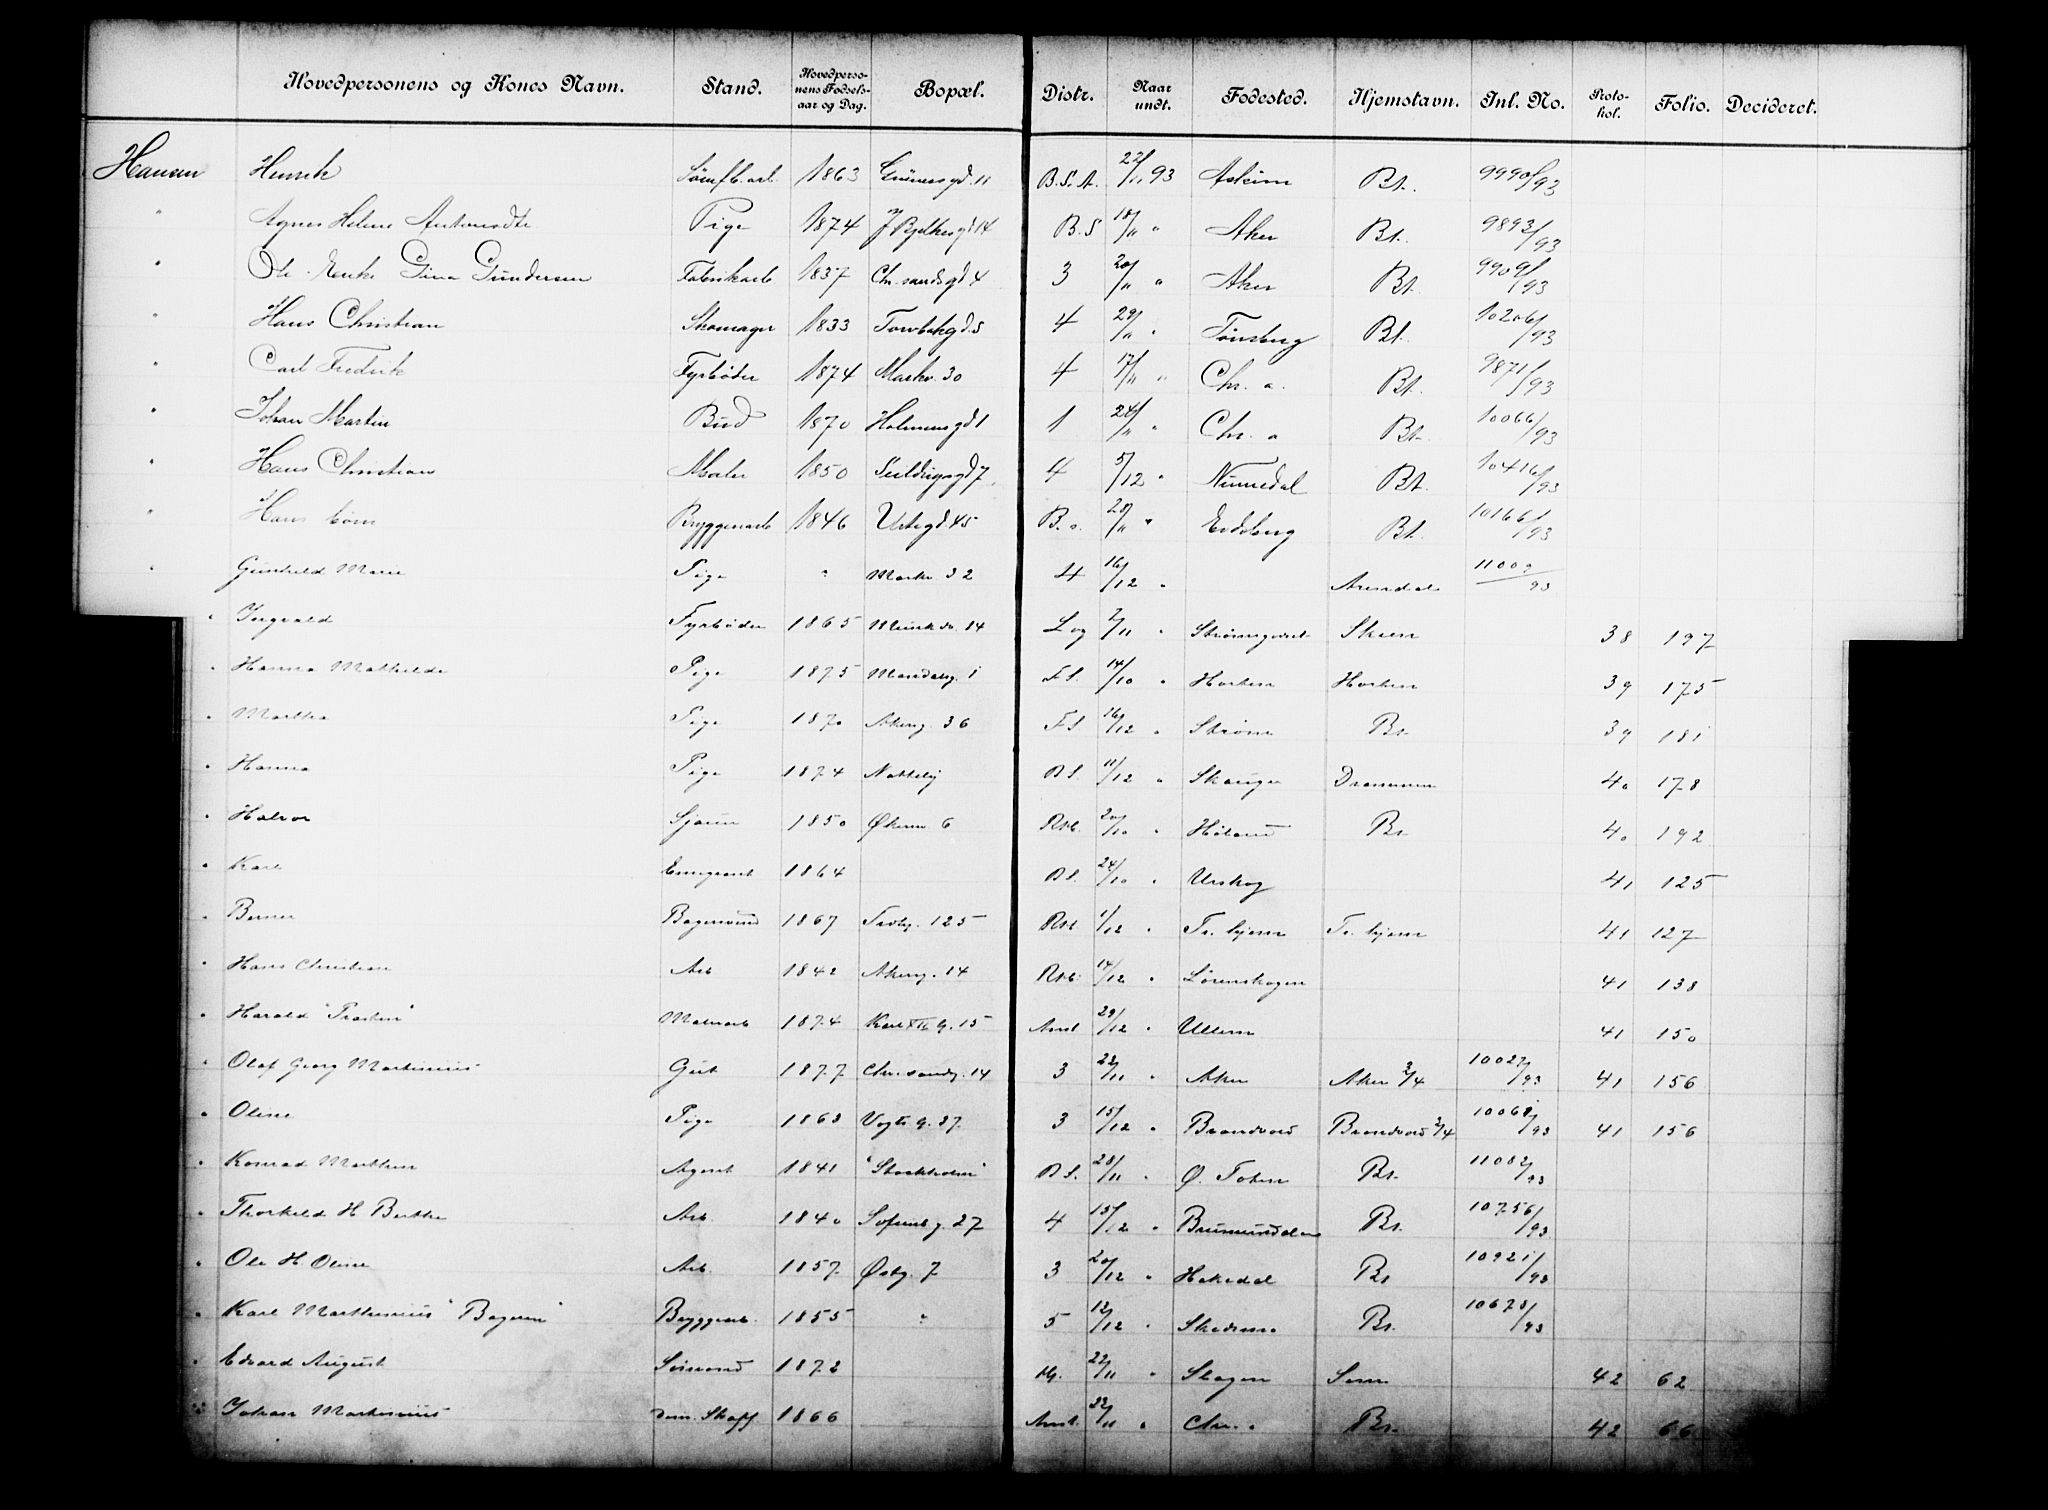 Hovedpersonens og Kones Navn. Stand. Hovedpersonens Fødselsaar og Dag. Bopæl. Distr. Naar undt. Fødested. Hjemstavn. Inl. No. Protokol. Folio. Decideret.
Hansen Henrik 1863 11 B.S.A. 22/11 93 Askim Bt. 9990/93
" Agnes Helene Pige 1874 J Bjelkesgd 14 B.S 18/11 " Aker Bt. 9893/93
" Ole Enke Gina Gundersen Fabrikarb 1837 Chr. sandsgd 4 3 20/11 " Aker Bt. 9909/93
" Hans Christian Skomager 1833 Torvbakgd. 5 4 29/11 " Tønsberg Bt. 10206/93
" Carl Fredrik Fyrbøder 1874 Markv. 30 4 17/11 " Chr. a. Bt. 9871/93
" Johan Martin Bud 1870 Holmensgd 1 1 24/11 " Chr. a Bt. 10066/93
" Hans Christian Maler 1850 Seildugsgd 7 4 5/12 " Numedal Bt. 10416/93
" Hans Bryggerarb 1846 Urtegd 45 B.s. 28/11 " Eidsberg Bt. 10166/93
" Gunhild Marie Pige " Markv. 32 4 16/12 " Arendal 11009/93
" Ingvald Fyrbøder 1865 Munkdv. 14 Log 7/11 " Strømsgodset Skien 38 197
" Hanna Mathilde Pige 1875 Mandalsg. 1 F.S. 14/10 " Horten Horten 39 175
" Martha Pige 1870 Akersg. 36 F.S 16/12 " Strøm Bt. 39 181
" Hanna Pige 1874 B.S. 11/12 " Skauger Drammen 40 178
" Halvor Sjauer 1850 Økernv. 6 Rst. 20/10 " Høland Bt 40 192
" Karl Emigrant 1864 B.S. 24/10 " Urskog 41 125
" Berner Bagersvend 1867 125 Rst. 1/12 " Tr. hjem Tr. hjem 41 127
" Hans Christian Arb 1842 Akersg. 14 Rst. 14/12 " Lørenskogen 41 138
" Harald Malerarb 1874 Karl XII G. 15 Anst 29/12 " Ullern 41 150
" Olaf Georg Martinius Gut 1877 Chr. sandg. 14 3 22/11 " Aker Aker 2/4 10027/93 41 156
" Oline Pige 1863 Vogts g. 27 3 15/12 " Brandvold Brandvold 2/4 10068/93 41 156
" Konrad Marthin Agent 1841 "Stockholm" B.S. 28/11 " Ø. Toten Bt. 11082/93
" Thorkild H Berthe Arb. 1840 Sofienbg. 27 4 13/12 " Brumunddalen Bt. 10756/93
" Ole H Oline Arb. 1857 Østg. 7 3 20/12 " Hakedal Bt 10921/93
" Karl Marthinius "Bageren" Bryggearb. 1855 " 5 12/12 " Skedsmo Bt. 10678/93
" Edvard August Sømand 1872 22/11 " Slagen Sem 42 62
" Johan Martinius dem. Skaff 1866 Anst. 22/11 " Chr. a Bt. 42 66